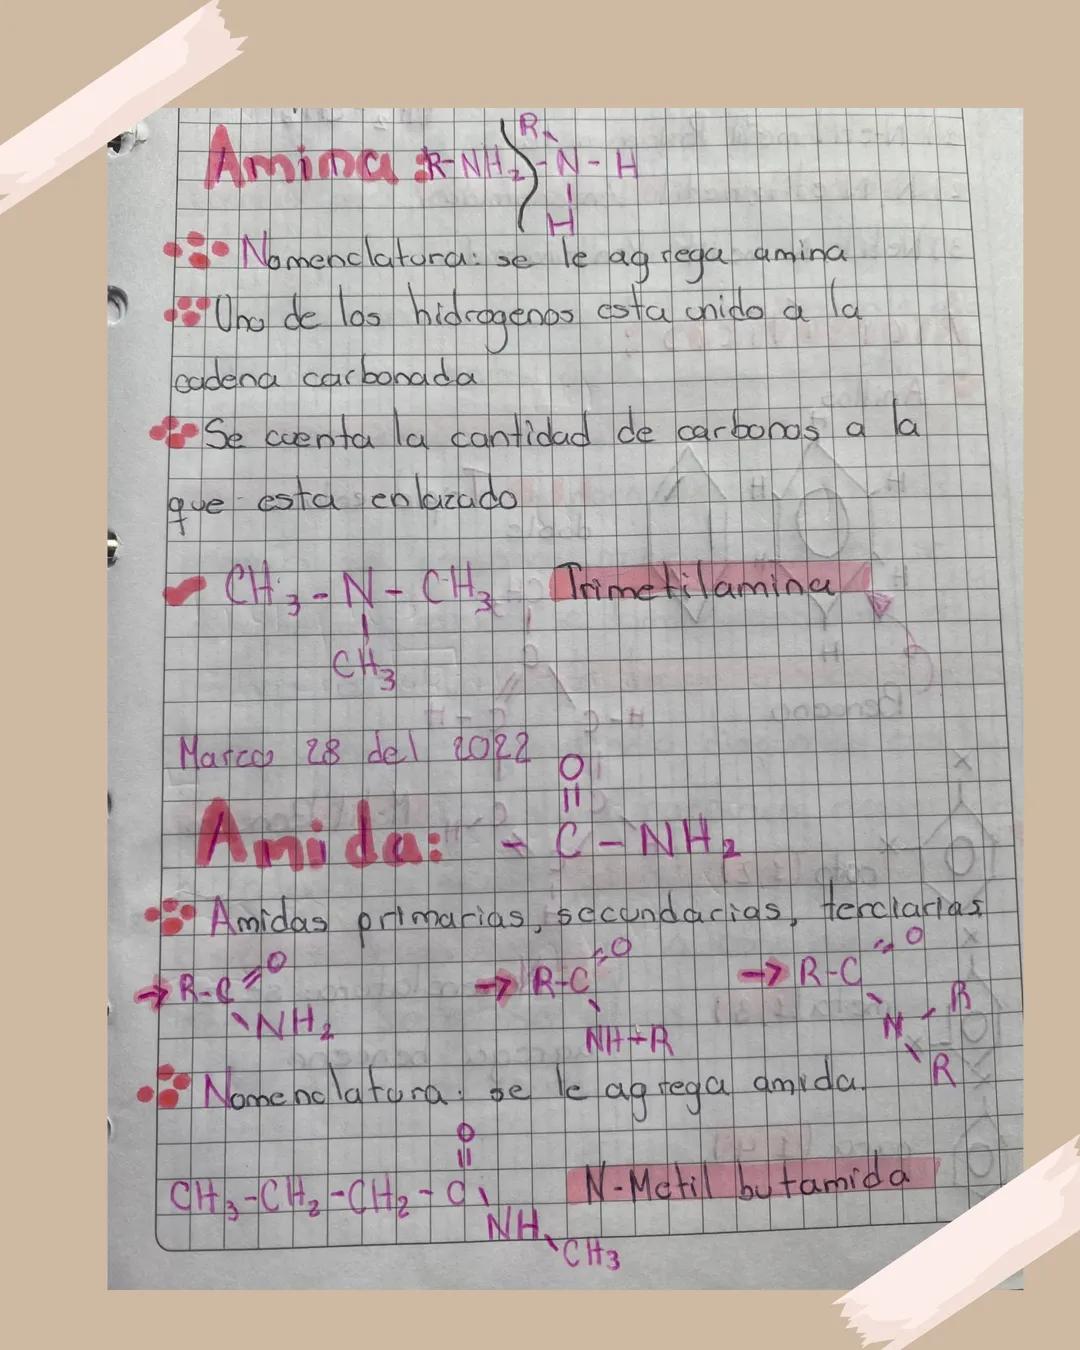 Amina: R-NH₂ R-N-H
H
Nomenclatura: se le agrega amina
Uno de los hidrogenos esta unido a la
cadena carbonada
Se cuenta la cantidad de carbonos a la
que esta enlazado
CH₃-N-CH₃ Trimetilamina
CH₃
Marzo 28 del 2022
O
Amida: - C-NH₂
Amidas primarias, secundarias, terciarias
R-C=O R-C=O R-C=O
NH₂ NH-R N-R
R
Nomenclatura: se le agrega amida.
O
CH₃-CH₂-CH₂-C N-Metil butamida
NH
CH₃